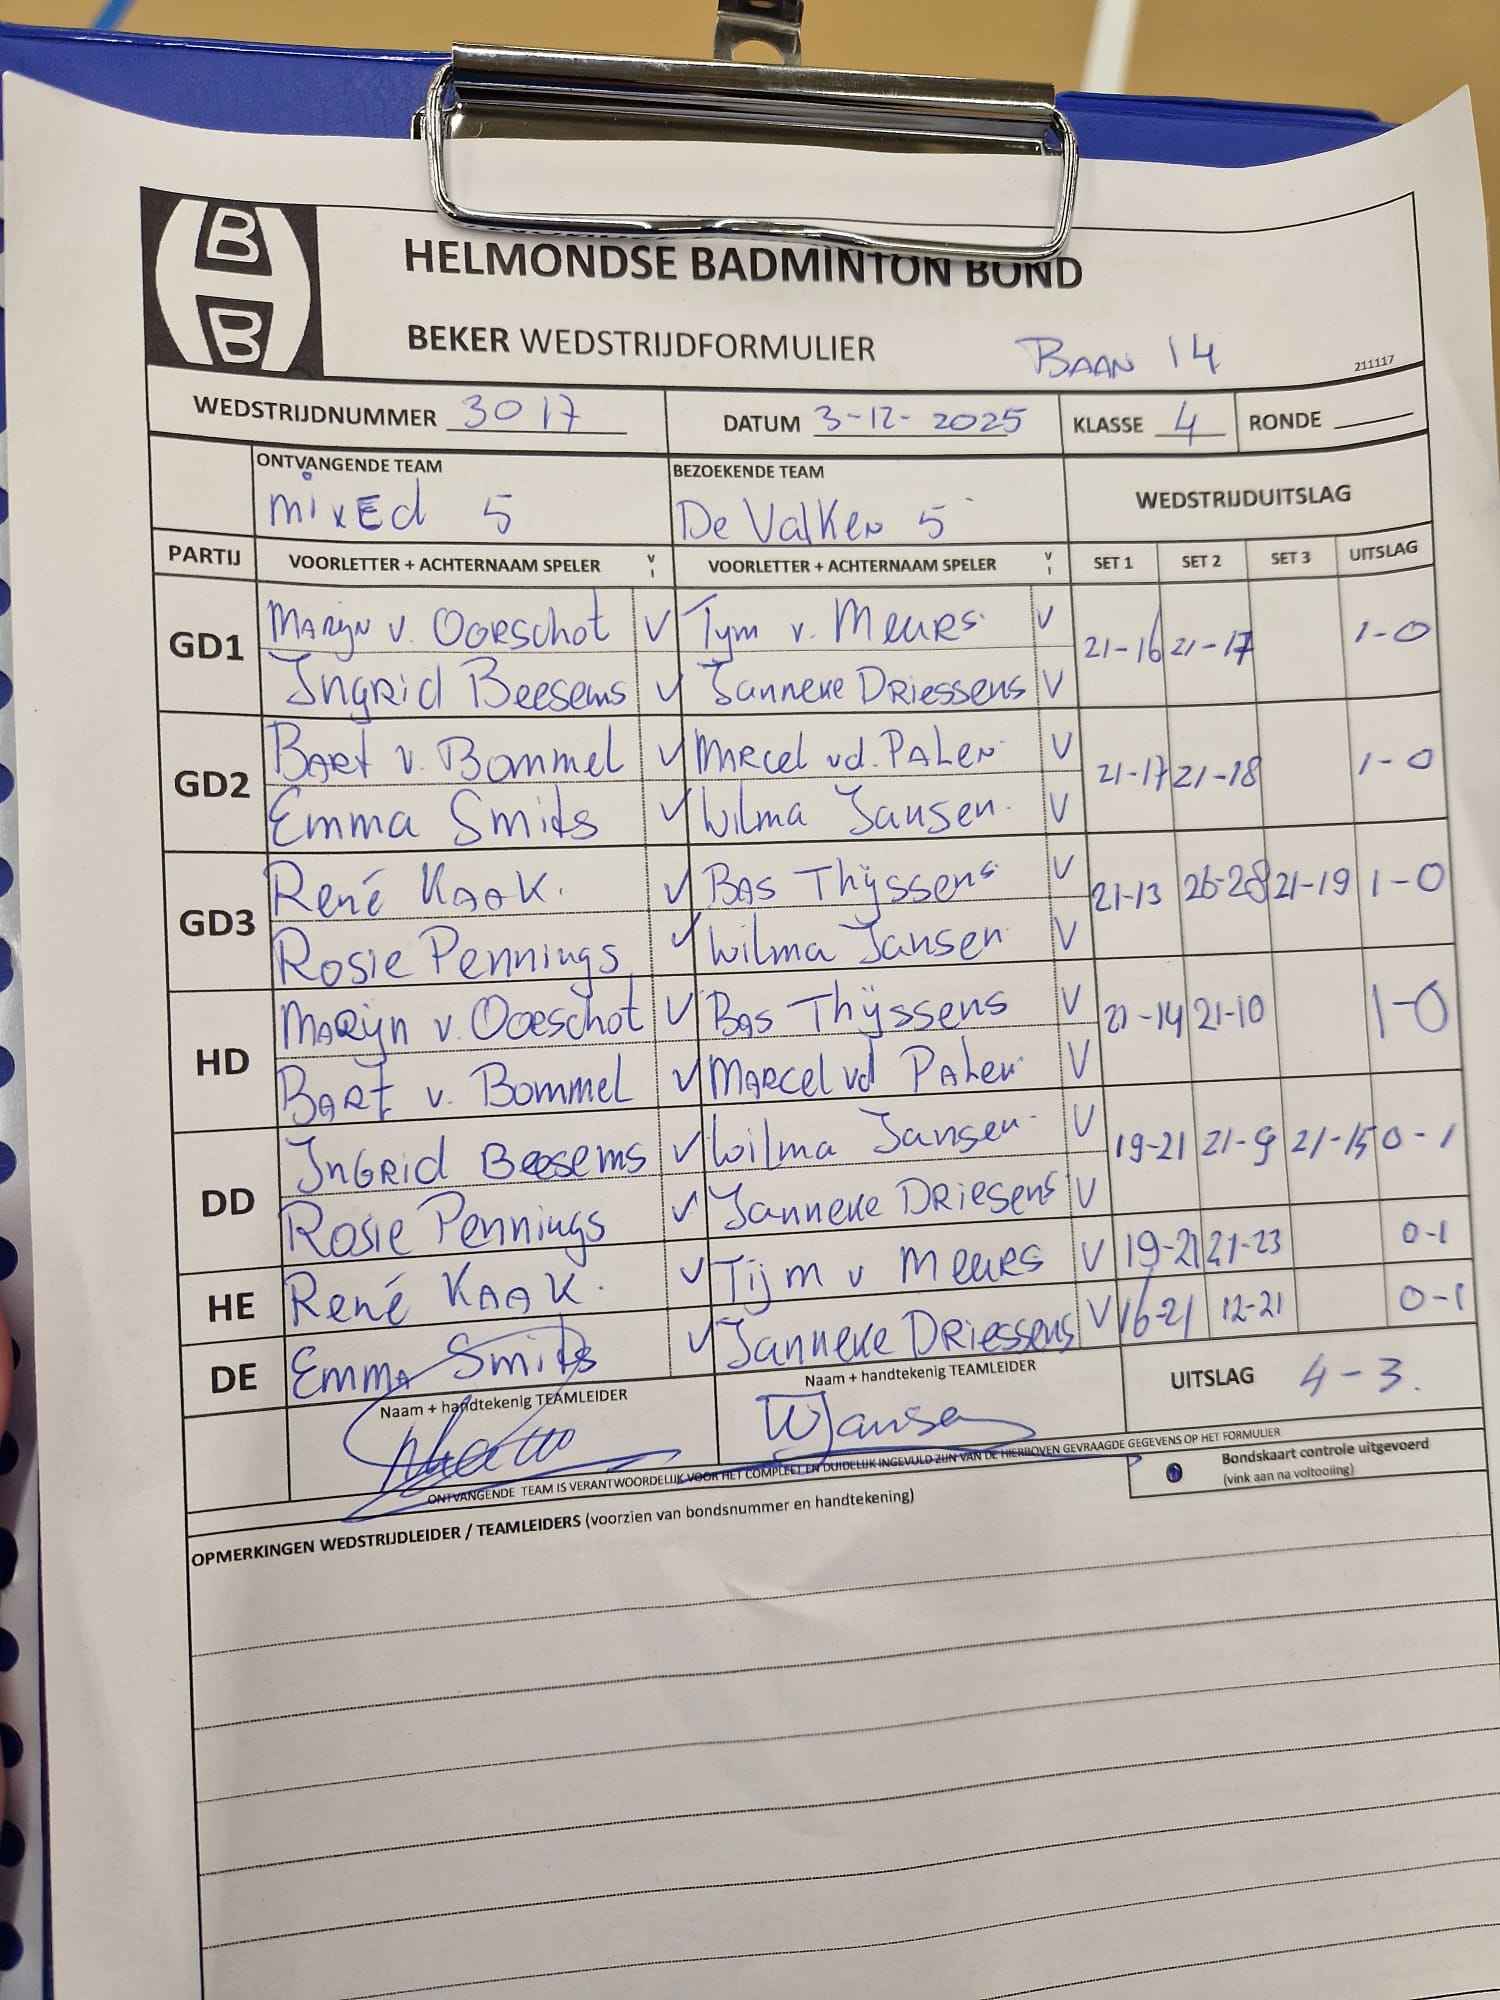 B
B
HELMONDSE BADMINTON BOND
BEKER WEDSTRIJDFORMULIER
BAAN 14
211117
WEDSTRIJDNUMMER 3017 DATUM 3-12-2025 KLASSE 4 RONDE
ONTVANGENDE TEAM BEZOEKENDE TEAM WEDSTRIJDUITSLAG
mixEd 5 De Valken 5
PARTIJ VOORLETTER + ACHTERNAAM SPELER V I VOORLETTER + ACHTERNAAM SPELER V I SET 1 SET 2 SET 3 UITSLAG
GD1 Marijn v. Oorschot V Tym v. Meurs V 21-16 21-17 1-0
Ingrid Beesems V Janneke Driessens V
GD2 Bart v. Bommel V Marcel vd. Palen V 21-17 21-18 1-0
Emma Smits V Wilma Jansen V
GD3 René Kaak. V Bas Thijssens V 21-13 26-28 21-19 1-0
Rosie Pennings V Wilma Jansen V
HD Marijn v. Oorschot V Bas Thijssens V 21-14 21-10 1-0
Bart v. Bommel V Marcel vd Palen V
DD Ingrid Beesems V Wilma Jansen V 19-21 21-9 21-15 0-1
Rosie Pennings V Janneke Driesens V
HE René Kaak. V Tijm v Meurs V 19-21 21-23 0-1
DE Emma Smits V Janneke Driessens V 16-21 12-21 0-1
Naam + handtekenig TEAMLEIDER Naam + handtekenig TEAMLEIDER UITSLAG 4-3.
WJansen
ONTVANGENDE TEAM IS VERANTWOORDELIJK VOOR HET COMPLEET EN DUIDELIJK INGEVULD ZIJN VAN DE HIERBOVEN GEVRAAGDE GEGEVENS OP HET FORMULIER
Bondskaart controle uitgevoerd
(vink aan na voltooiing)
OPMERKINGEN WEDSTRIJDLEIDER / TEAMLEIDERS (voorzien van bondsnummer en handtekening)